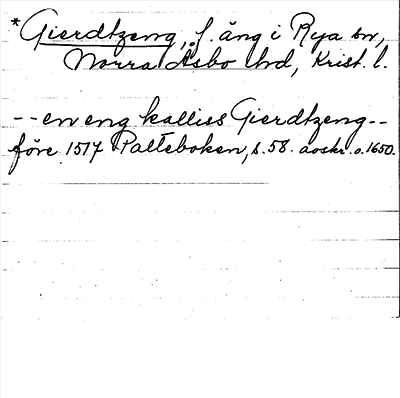 *Gierdtzeng, f. äng i Rya sn,
Norra Åsbo hd, Krist. l.
-- en eng kalliss Gierdtzeng --
före 1517 Palteboken, s. 58. avskr. o. 1650.